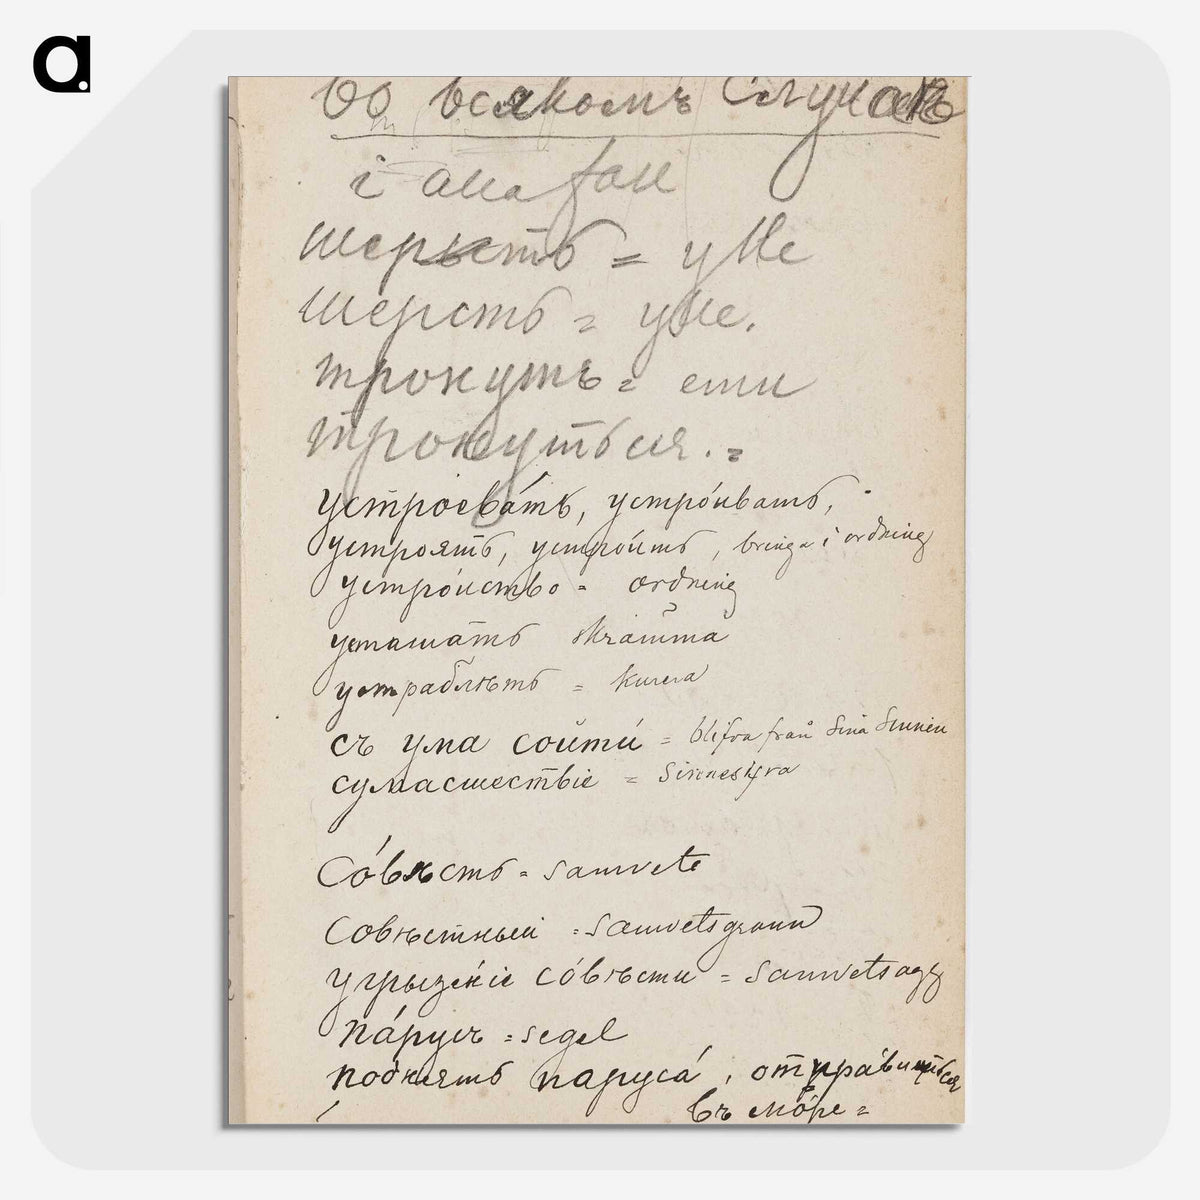 a.
Во всякомъ Случаѣ
i alla fall
шерсть = ylle
шерсть = ylle.
тронуть =
тронуться. =
устроевáть, устрóивать,
устроять, устрóить, bringa i ordning
устрóиство = ordning
усташать skrämma
устраблять = kurera
съ ума сойти́ = blifva från sina sinnen
сумасшествiе = sinnesyra
Сóвѣсть = samvete
Совѣстный = samvetsgrann
угрызéнiе сóвѣсти = samvetsagg
пáрусъ = segel
поднять парусá, отправиться
въ мóре =